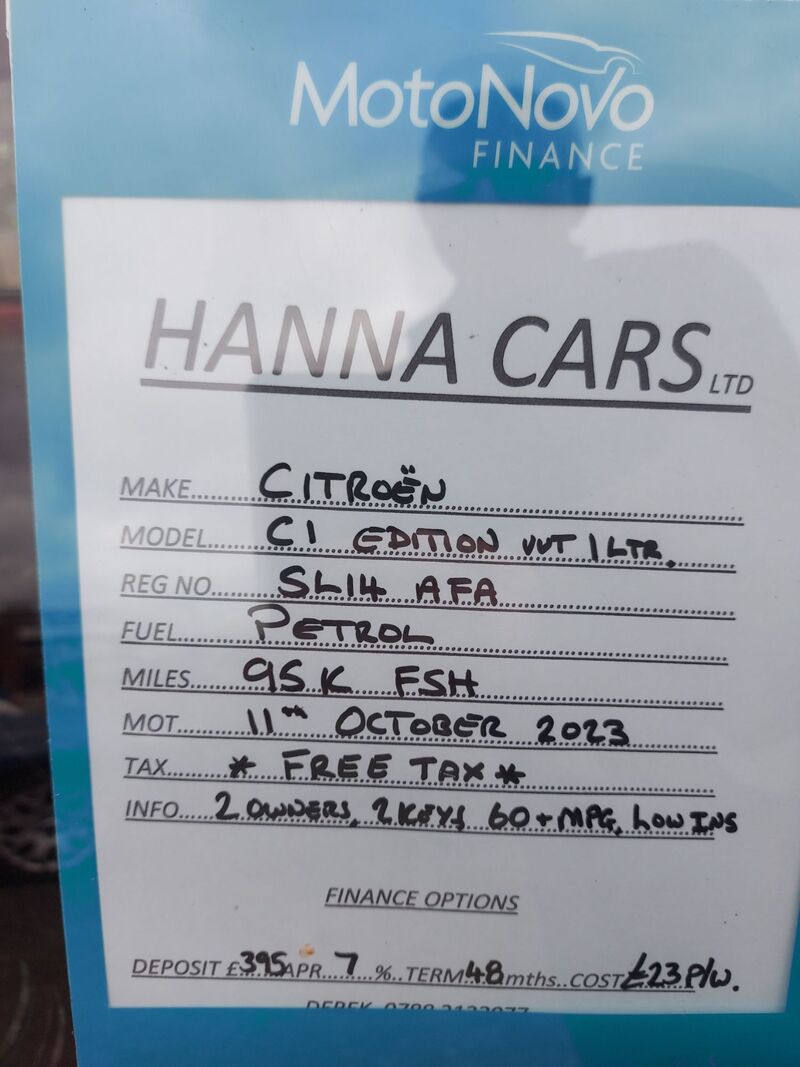 MOTONOVO
FINANCE
HANNA CARS LTD
MAKE.......CITROËN
MODEL.......C1 EDITION VVT 1 LTR.
REG NO.......SL14 AFA
FUEL.......PETROL
MILES.......95K FSH
MOT.......11TH OCTOBER 2023
TAX.......* FREE TAX *
INFO.......2 OWNERS, 2 KEYS 60+MPG, LOW INS
FINANCE OPTIONS
DEPOSIT £395 APR.....7.....%..TERM 48 mths..COST £23 P/W.
DEREK